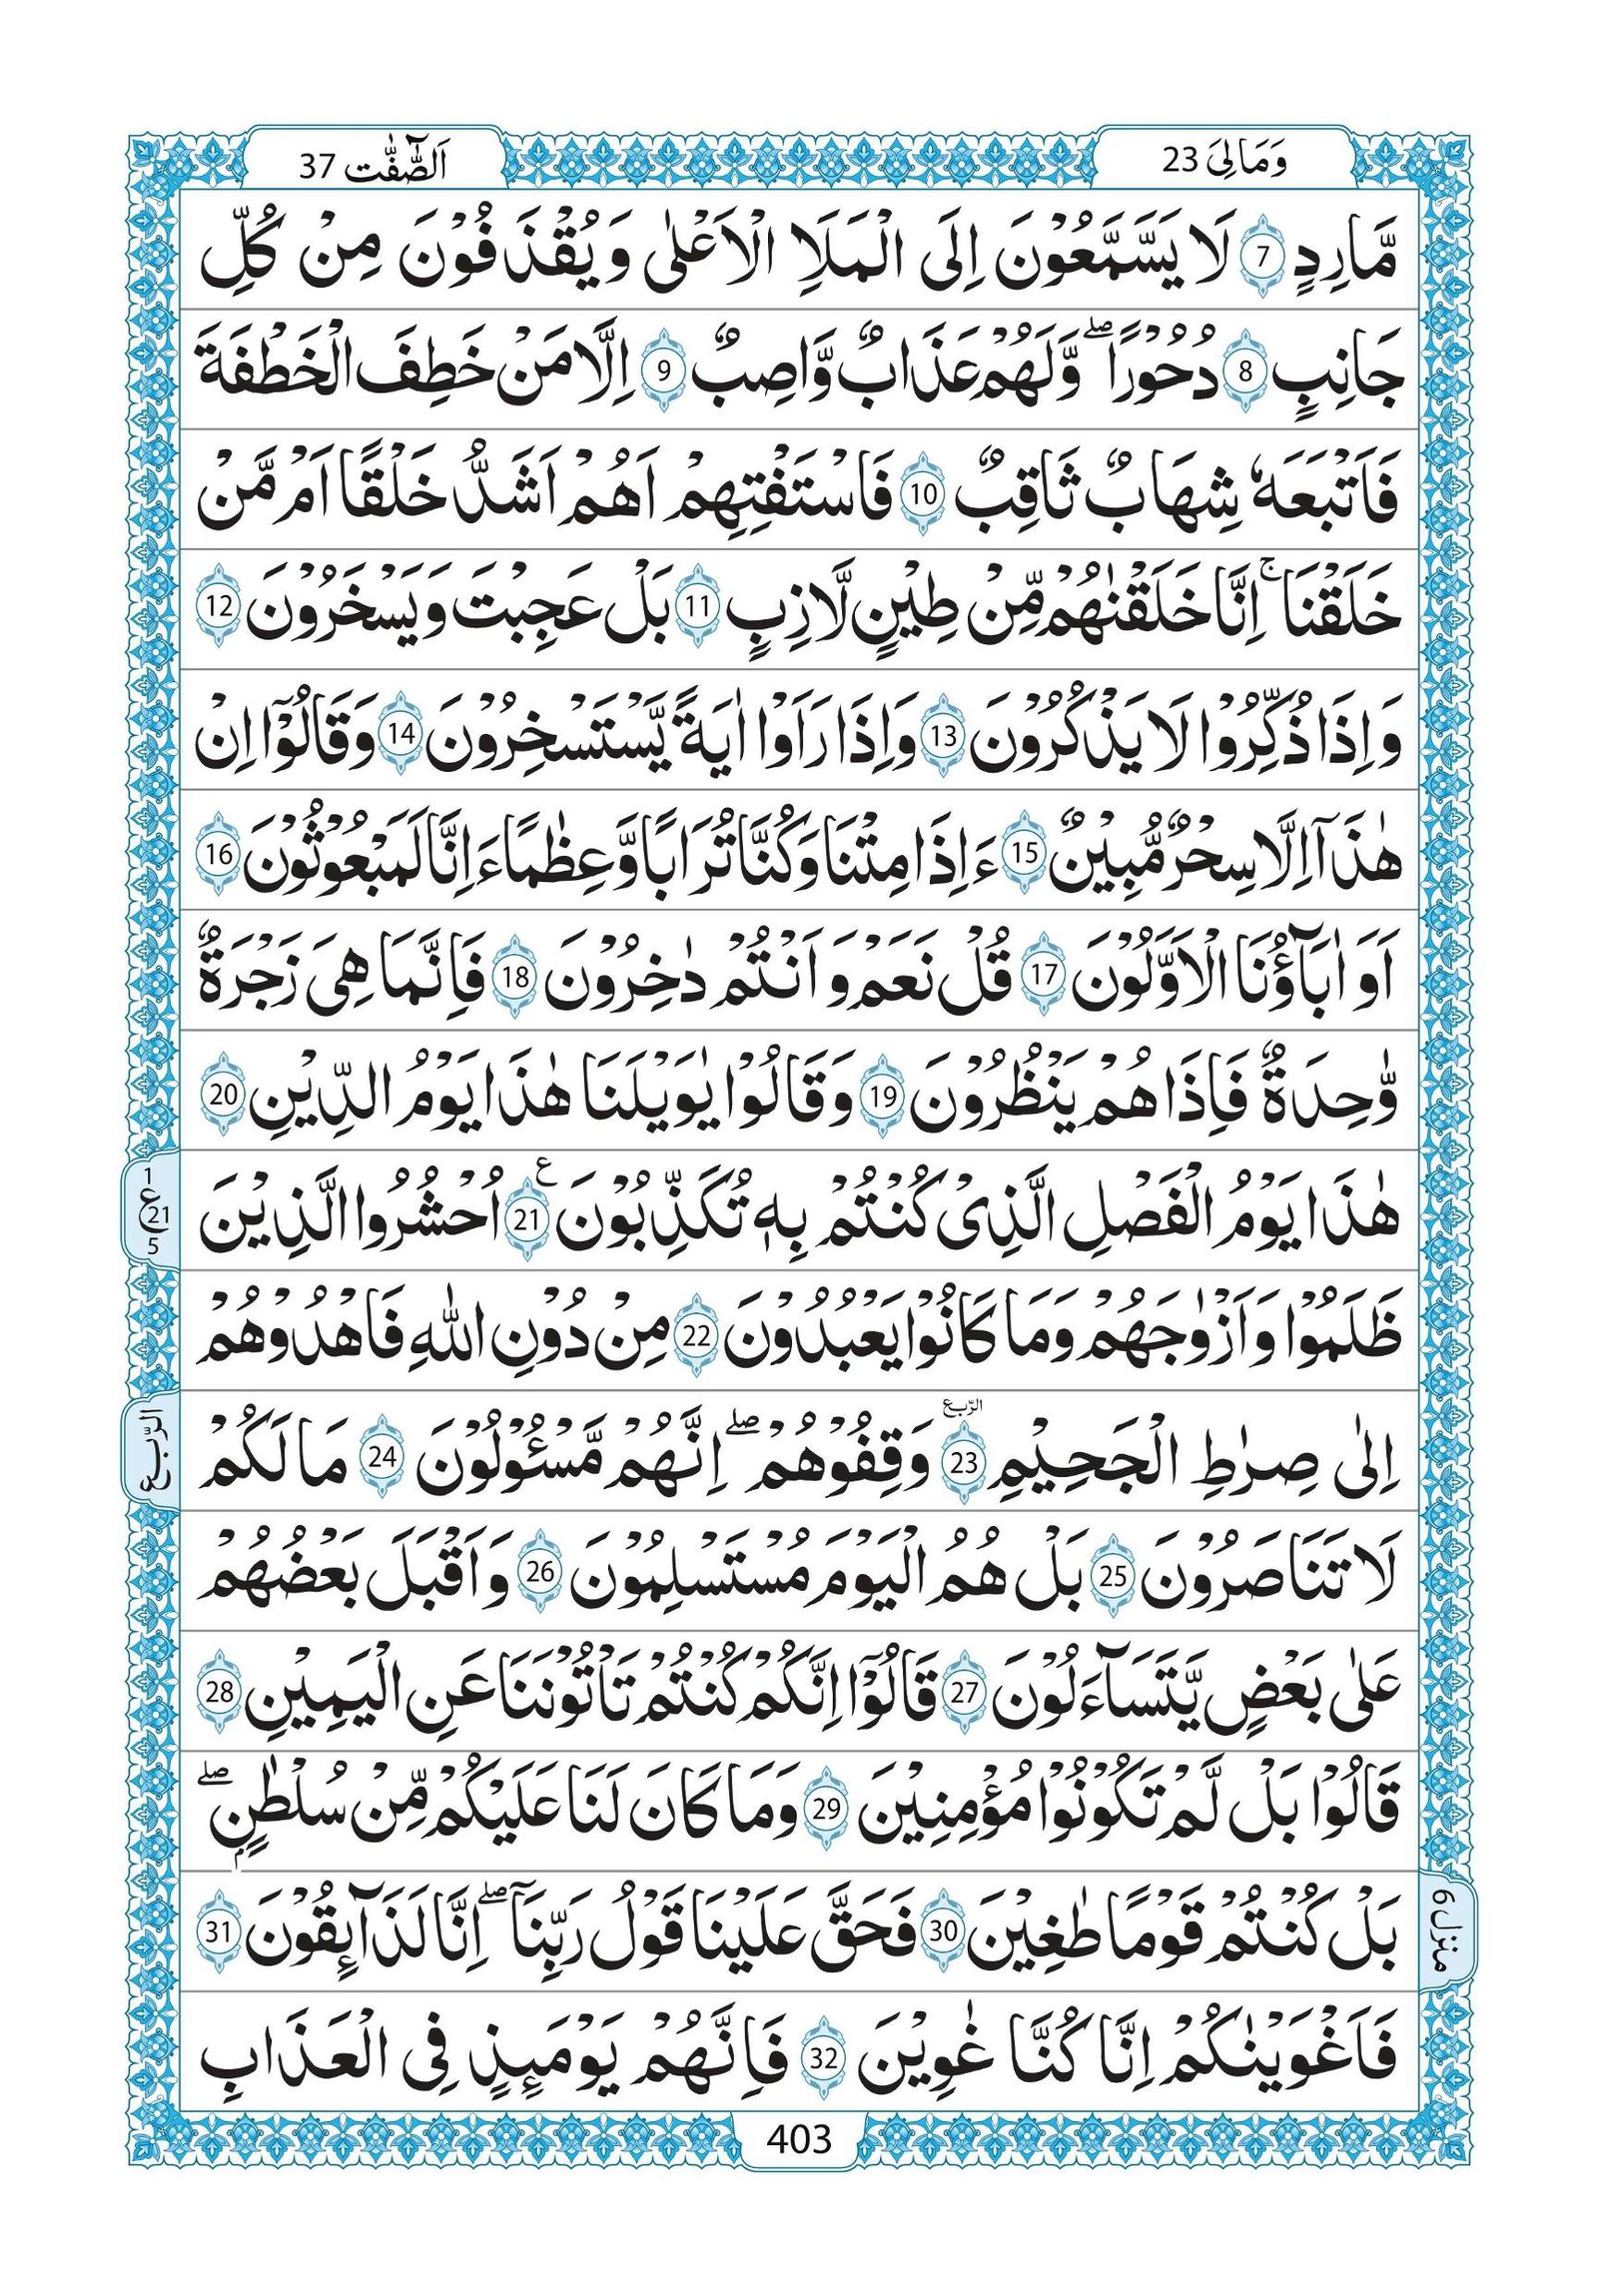 وَمَالِیَ 23
اَلصّٰٓفّٰت 37
مَّارِدٍ 7 لَا یَسَّمَّعُوْنَ اِلَی الْمَلَاِ الْاَعْلٰی وَیُقْذَفُوْنَ مِنْ كُلِّ
جَانِبٍ 8 دُحُوْرًا ۖ وَّلَهُمْ عَذَابٌ وَّاصِبٌ 9 اِلَّا مَنْ خَطِفَ الْخَطْفَةَ
فَاَتْبَعَهٗ شِهَابٌ ثَاقِبٌ 10 فَاسْتَفْتِهِمْ اَهُمْ اَشَدُّ خَلْقًا اَمْ مَّنْ
خَلَقْنَا ۚ اِنَّا خَلَقْنٰهُمْ مِّنْ طِیْنٍ لَّازِبٍ 11 بَلْ عَجِبْتَ وَیَسْخَرُوْنَ 12
وَاِذَا ذُكِّرُوْا لَا یَذْكُرُوْنَ 13 وَاِذَا رَاَوْا اٰیَةً یَّسْتَسْخِرُوْنَ 14 وَقَالُوْۤا اِنْ
هٰذَاۤ اِلَّا سِحْرٌ مُّبِیْنٌ 15 ءَاِذَا مِتْنَا وَكُنَّا تُرَابًا وَّعِظٰمًا ءَاِنَّا لَمَبْعُوْثُوْنَ 16
اَوَ اٰبَآؤُنَا الْاَوَّلُوْنَ 17 قُلْ نَعَمْ وَاَنْتُمْ دٰخِرُوْنَ 18 فَاِنَّمَا هِیَ زَجْرَةٌ
وّٰحِدَةٌ فَاِذَا هُمْ یَنْظُرُوْنَ 19 وَقَالُوْا یٰوَیْلَنَا هٰذَا یَوْمُ الدِّیْنِ 20
هٰذَا یَوْمُ الْفَصْلِ الَّذِیْ كُنْتُمْ بِهٖ تُكَذِّبُوْنَ 21 ع اُحْشُرُوا الَّذِیْنَ
1
ع 21
5
ظَلَمُوْا وَاَزْوٰجَهُمْ وَمَا كَانُوْا یَعْبُدُوْنَ 22 مِنْ دُوْنِ اللّٰهِ فَاهْدُوْهُمْ
اِلٰی صِرٰطِ الْجَحِیْمِ 23 الرّبع وَقِفُوْهُمْ ۖ اِنَّهُمْ مَّسْـُٔوْلُوْنَ 24 مَا لَكُمْ
الرّبع
لَا تَنَاصَرُوْنَ 25 بَلْ هُمُ الْیَوْمَ مُسْتَسْلِمُوْنَ 26 وَاَقْبَلَ بَعْضُهُمْ
عَلٰی بَعْضٍ یَّتَسَآءَلُوْنَ 27 قَالُوْۤا اِنَّكُمْ كُنْتُمْ تَاْتُوْنَنَا عَنِ الْیَمِیْنِ 28
قَالُوْا بَلْ لَّمْ تَكُوْنُوْا مُؤْمِنِیْنَ 29 وَمَا كَانَ لَنَا عَلَیْكُمْ مِّنْ سُلْطٰنٍ ۖ
بَلْ كُنْتُمْ قَوْمًا طٰغِیْنَ 30 فَحَقَّ عَلَیْنَا قَوْلُ رَبِّنَاۤ ۖ اِنَّا لَذَآىِٕقُوْنَ 31
منزل 6
فَاَغْوَیْنٰكُمْ اِنَّا كُنَّا غٰوِیْنَ 32 فَاِنَّهُمْ یَوْمَىِٕذٍ فِی الْعَذَابِ
403